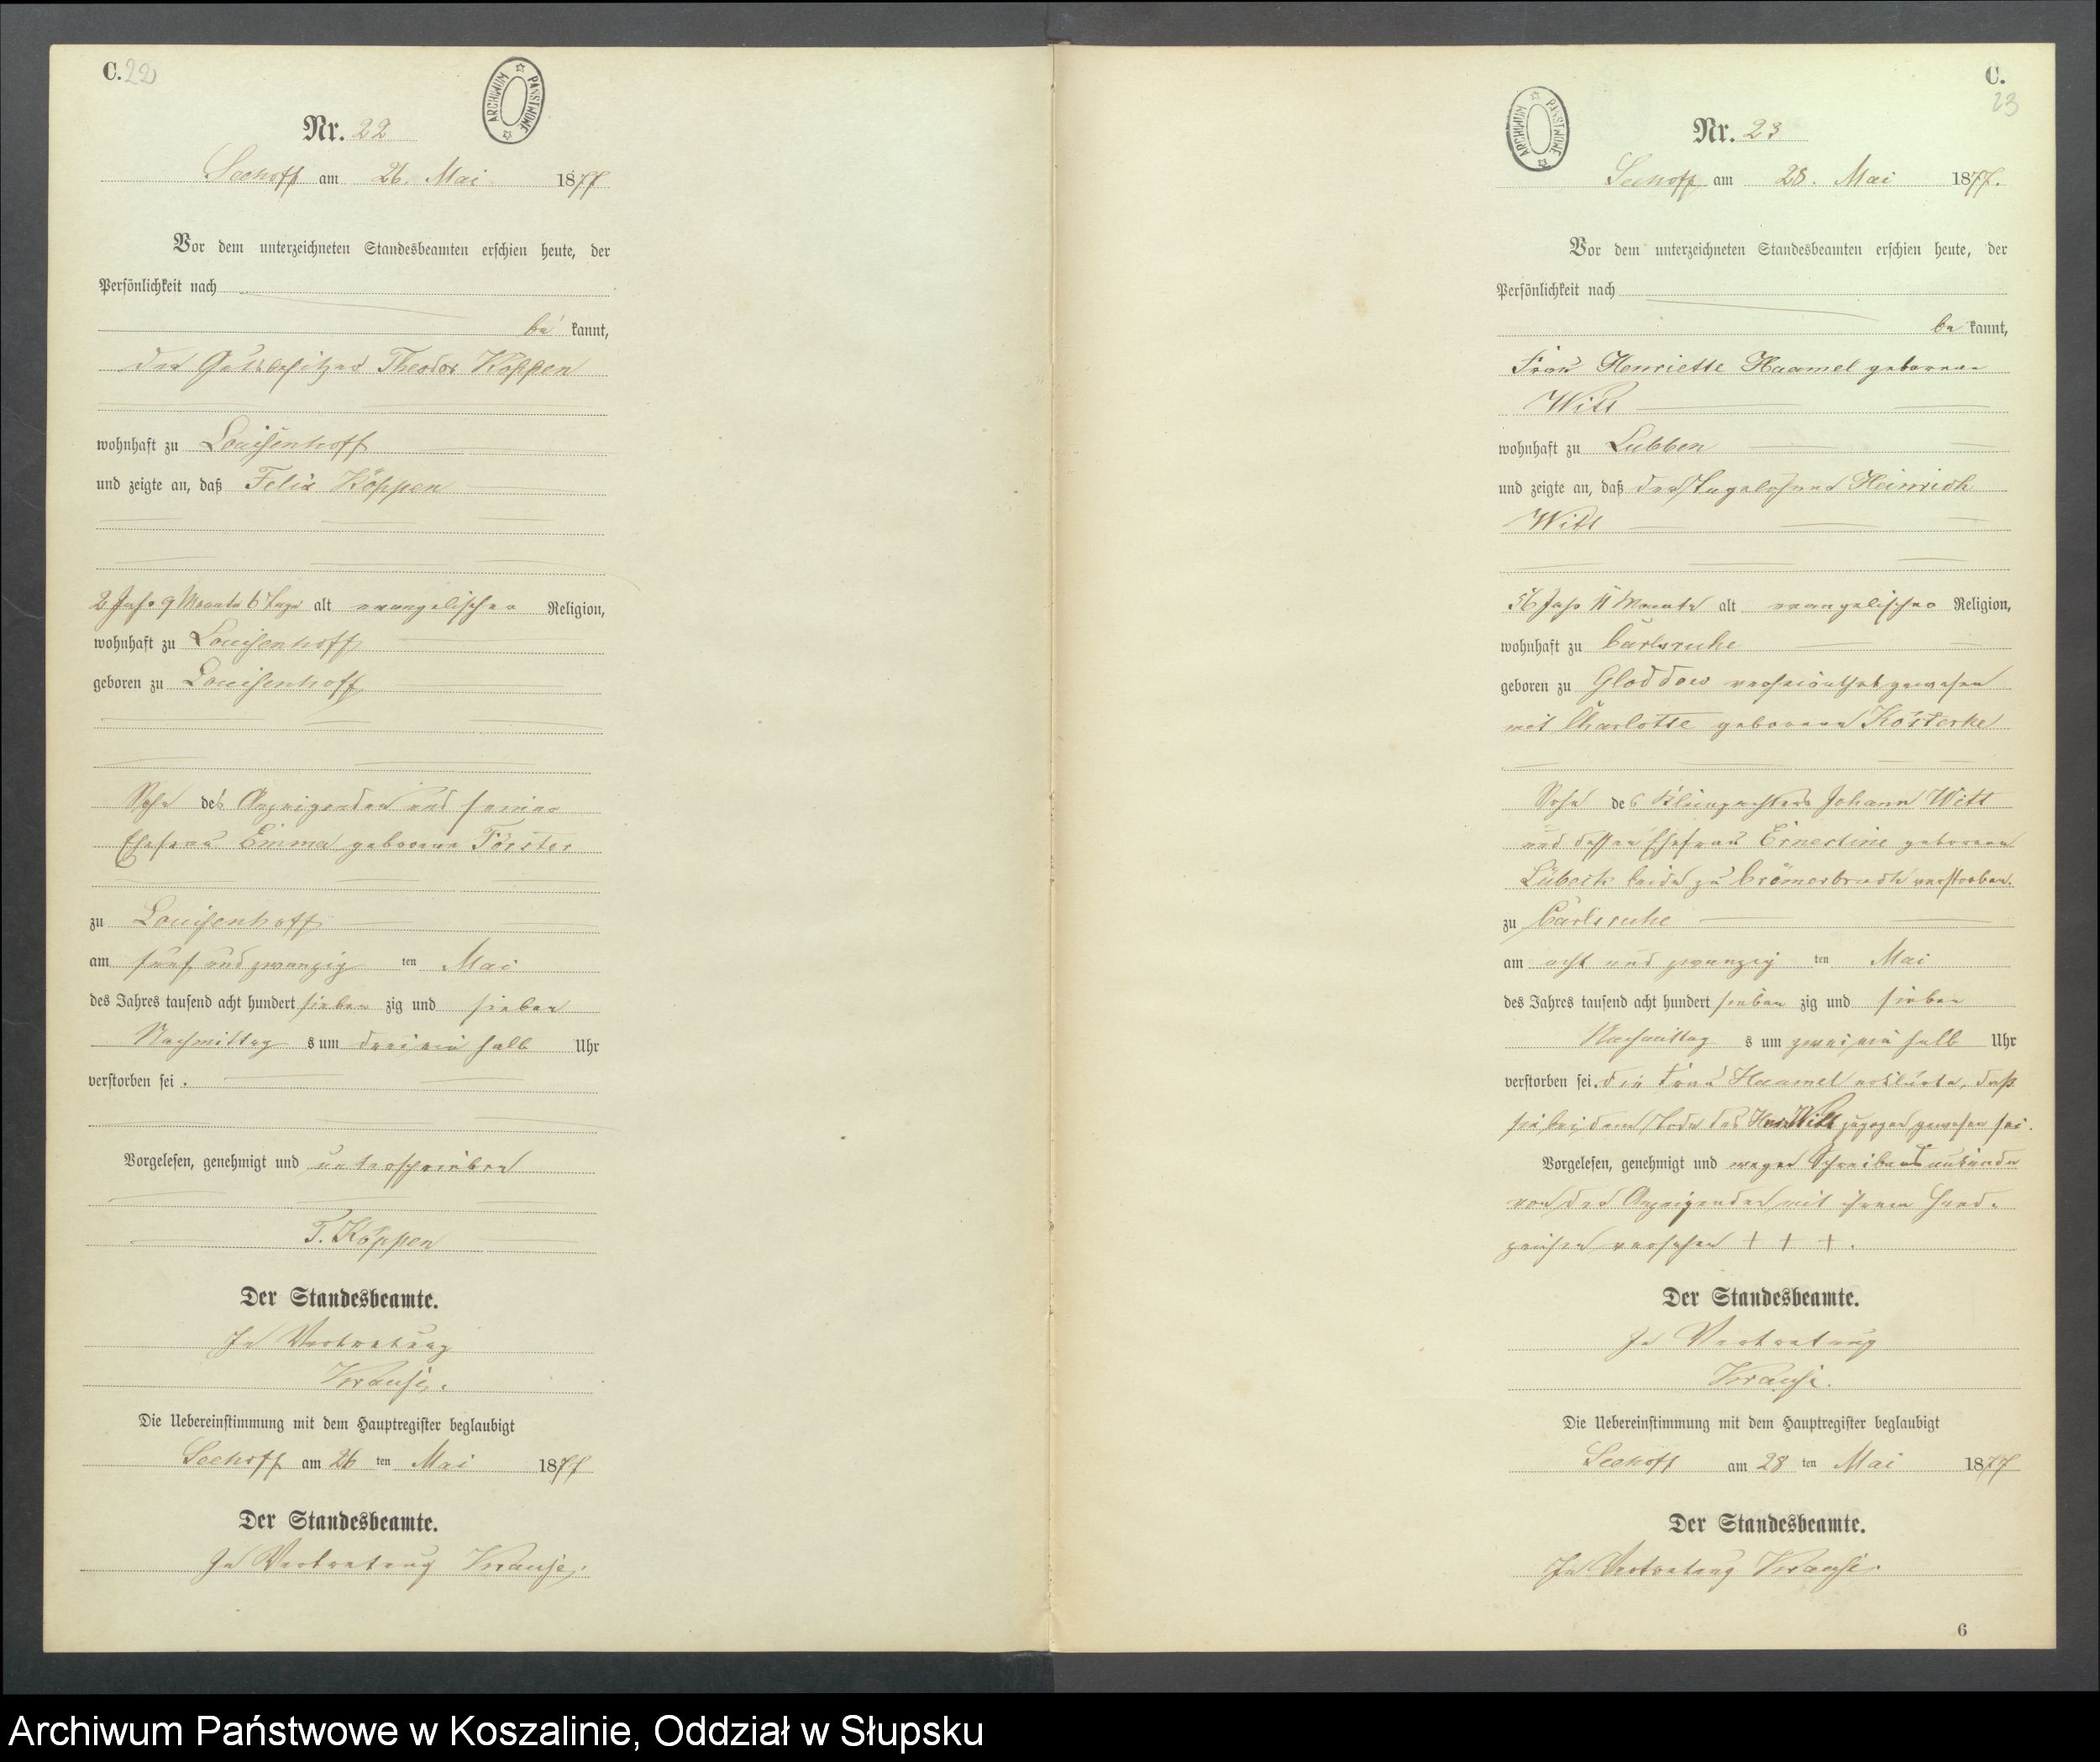 C. 22
ARCHIWUM PAŃSTWOWE
Nr. 22
Seehoff am 26. Mai 1877
Vor dem unterzeichneten Standesbeamten erschien heute, der
Persönlichkeit nach
be kannt,
der Gutsbesitzer Theodor Köppen
wohnhaft zu Louisenhoff
und zeigte an, daß Felix Köppen
2 Jahr 9 Monate 6 Tage alt evangelischer Religion,
wohnhaft zu Louisenhoff
geboren zu Louisenhoff
Sohn des Anzeigenden und seiner
Ehefrau Emma geborene Förster
zu Louisenhoff
am fünf und zwanzig ten Mai
des Jahres tausend acht hundert sieben zig und sieben
Nachmittag s um drei ein halb Uhr
verstorben sei.
Vorgelesen, genehmigt und unterschrieben
T. Köppen
Der Standesbeamte.
In Vertretung
Krause.
Die Uebereinstimmung mit dem Hauptregister beglaubigt
Seehoff am 26 ten Mai 1877
Der Standesbeamte.
In Vertretung Krause.
C.
23
ARCHIWUM PAŃSTWOWE
Nr. 23
Seehoff am 28. Mai 1877.
Vor dem unterzeichneten Standesbeamten erschien heute, der
Persönlichkeit nach
be kannt,
Frau Henriette Haamel geborene
Witt
wohnhaft zu Lubben
und zeigte an, daß der Tagelöhner Heinrich
Witt
56 Jahr 11 Monate alt evangelischer Religion,
wohnhaft zu Carlsruhe
geboren zu Gloddow verheirathet gewesen
mit Charlotte geborene Kösterke
Sohn des Johann Witt
und dessen Ehefrau Ernestine geborene
Lübeck beide zu verstorben.
zu Carlsruhe
am acht und zwanzig ten Mai
des Jahres tausend acht hundert sieben zig und sieben
Nachmittag s um zwei ein halb Uhr
verstorben sei. die Frau Haamel erklärte, daß
sie bei dem Tode des Witt zugegen gewesen sei.
Vorgelesen, genehmigt und wegen Schreibensunkunde
von der Anzeigenden mit ihrem Hand-
zeichen versehen + + +.
Der Standesbeamte.
In Vertretung
Krause.
Die Uebereinstimmung mit dem Hauptregister beglaubigt
Seehoff am 28 ten Mai 1877
Der Standesbeamte.
In Vertretung Krause.
6
Archiwum Państwowe w Koszalinie, Oddział w Słupsku